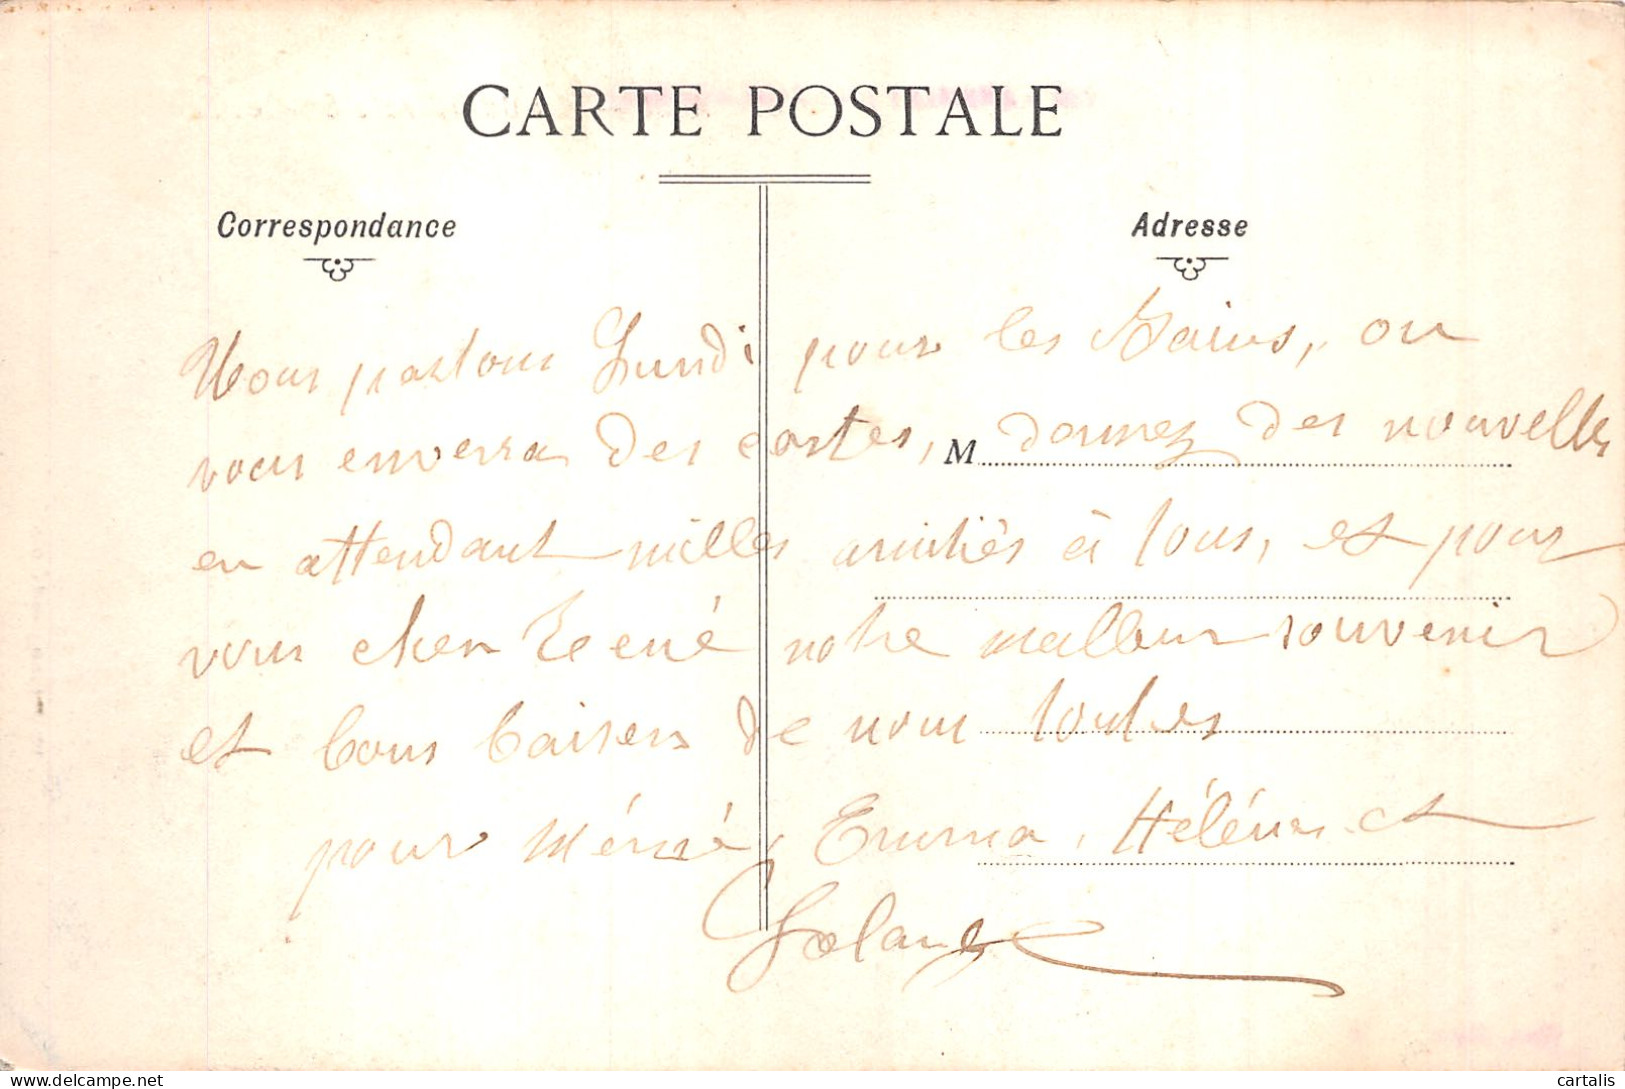 CARTE POSTALE
Correspondance
Adresse
Nous partons Lundi pour les Bains, on
vous enverra des cartes, M donnez des nouvelles
en attendant milles amitiés à tous, et pour
vous cher René notre meilleur souvenir
et bons baisers de nous toutes
pour Mémé, Emma, Hélène et
Yolande
delcampe.net
cartalis